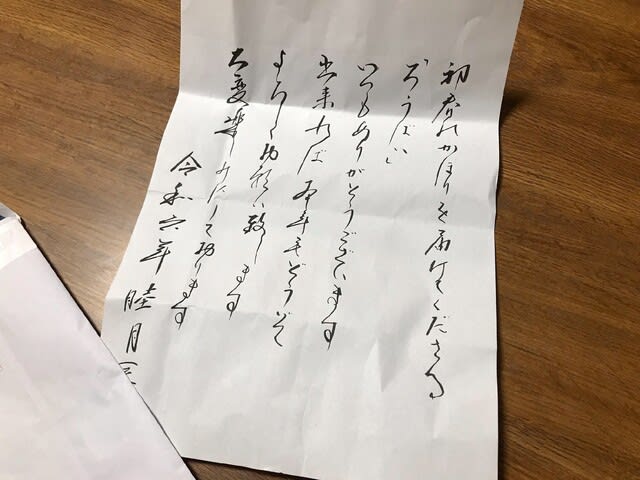 初春のかほりを届けてくださる
"ろうばい"
いつもありがとうございます
出来れば本年もどうぞ
よろしくお願い致します
大変楽しみにして居ります
令和六年 睦月